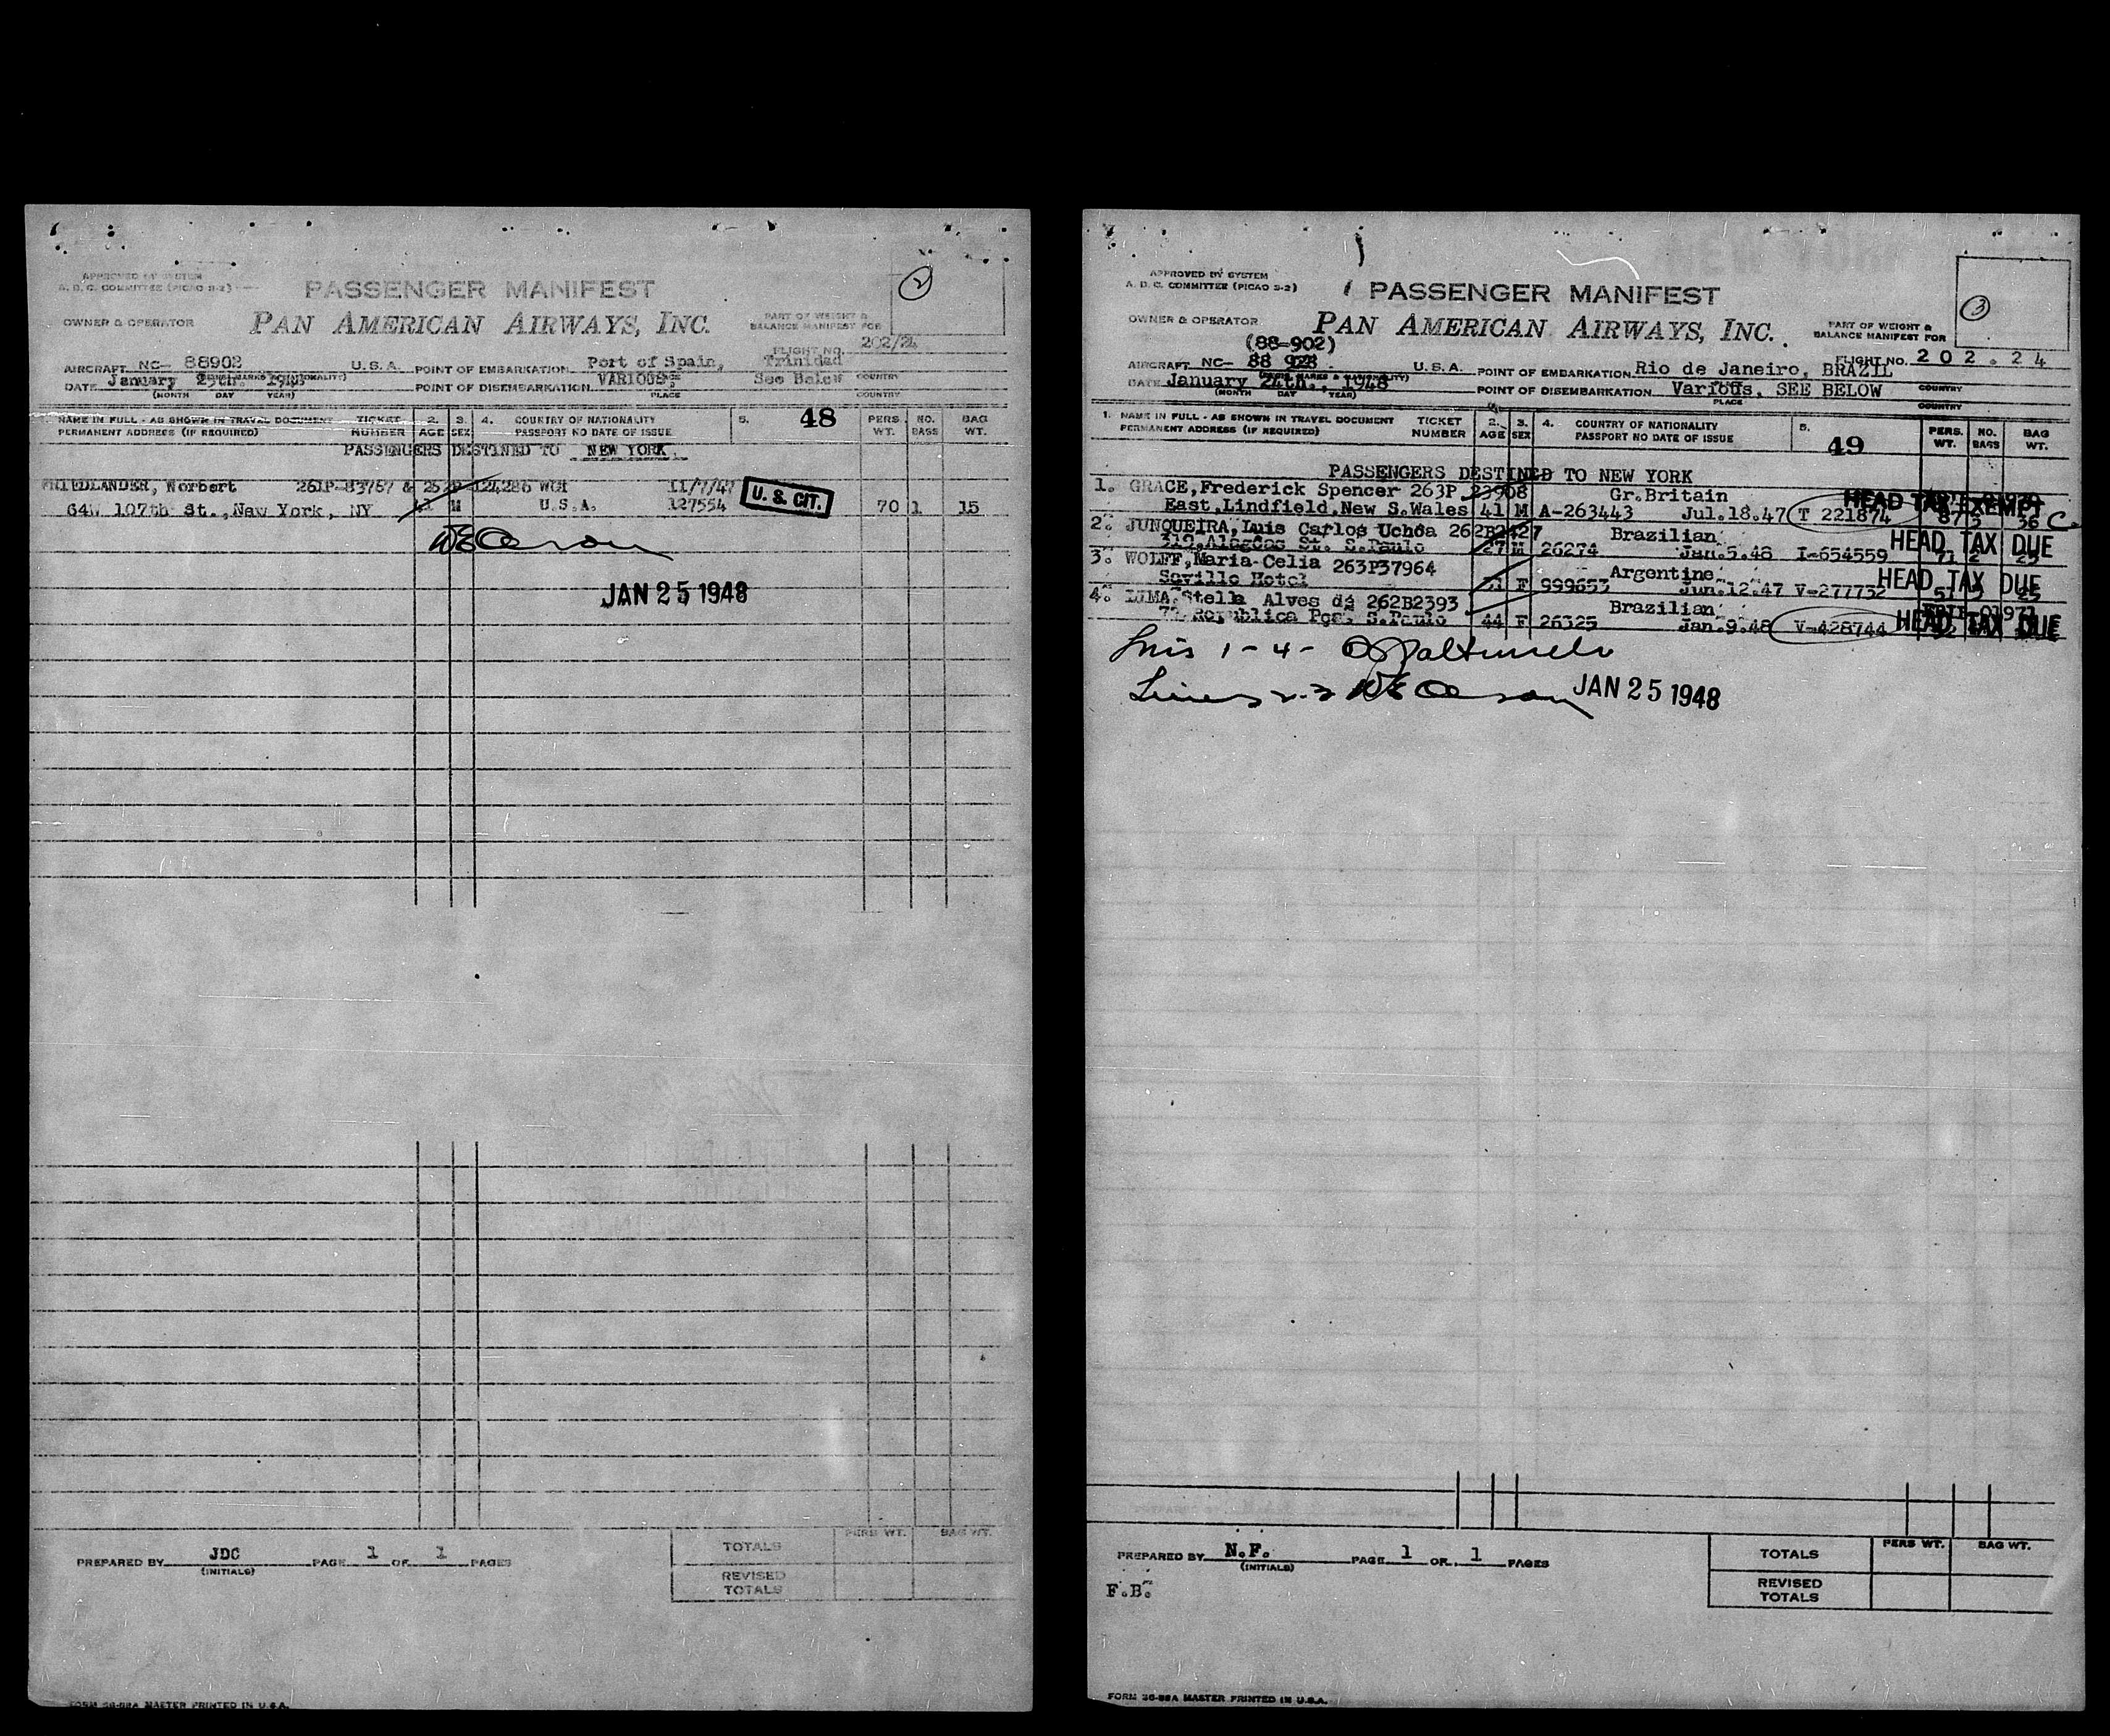 APPROVED BY SYSTEM
A. D. C. COMMITTEE (PICAO S-2)
PASSENGER MANIFEST
2
OWNER & OPERATOR
PAN AMERICAN AIRWAYS, INC.
PART OF WEIGHT &
BALANCE MANIFEST FOR
FLIGHT NO. 202/24
AIRCRAFT NC- 88902 U.S.A. POINT OF EMBARKATION Port of Spain, Trinidad
DATE January 25th. 1948 POINT OF DISEMBARKATION VARIOUS, See Below COUNTRY
(MONTH DAY YEAR) PLACE COUNTRY
NAME IN FULL - AS SHOWN IN TRAVEL DOCUMENT TICKET 2. 3. 4. COUNTRY OF NATIONALITY 5. 48 PERS. NO. BAG
PERMANENT ADDRESS (IF REQUIRED) NUMBER AGE SEX PASSPORT NO DATE OF ISSUE WT. BAGS WT.
PASSENGERS DESTINED TO NEW YORK
FRIEDLANDER, Norbert 261P-83767 & 124286 WCH 11/7/47 U. S. CIT.
64W 107th St., New York, NY M U.S.A. 127554 70 1 15
JAN 25 1948
PREPARED BY JDC PAGE 1 OF 1 PAGES
(INITIALS)
PERS WT. BAG WT.
TOTALS
REVISED
TOTALS
FORM 36-88A MASTER PRINTED IN U.S.A.
APPROVED BY SYSTEM
A. D. C. COMMITTEE (PICAO S-2)
PASSENGER MANIFEST
3
OWNER & OPERATOR
PAN AMERICAN AIRWAYS, INC.
PART OF WEIGHT &
BALANCE MANIFEST FOR
(88-902)
FLIGHT NO. 202.24
AIRCRAFT NC- 88 U.S.A. POINT OF EMBARKATION Rio de Janeiro, BRAZIL
DATE January 24th., 1948 POINT OF DISEMBARKATION Various, SEE BELOW COUNTRY
(MONTH DAY YEAR) PLACE COUNTRY
1. NAME IN FULL - AS SHOWN IN TRAVEL DOCUMENT TICKET 2. 3. 4. COUNTRY OF NATIONALITY 5. 49 PERS. NO. BAG
PERMANENT ADDRESS (IF REQUIRED) NUMBER AGE SEX PASSPORT NO DATE OF ISSUE WT. BAGS WT.
PASSENGERS DESTINED TO NEW YORK
1. GRACE,Frederick Spencer 263P 23908 Gr.Britain HEAD TAX EXEMPT
East,Lindfield,New S.Wales 41 M A-263443 Jul.18.47 T 221874 87 56
2. JUNQUEIRA,Luis Carlos Uchôa 262B2427 Brazilian HEAD TAX DUE
319,Alagôas St. S.Paulo 27 M 26274 Jan.5.48 I-654559 71 2 25
3. WOLFF,Maria-Celia 263P37964 Argentine HEAD TAX DUE
Saville Hotel F 999653 Jun.12.47 V-277732
4. LIMA,Stella Alves dá 262B2393 Brazilian HEAD TAX DUE
Republica Pça. S.Paulo 44 F 26325 Jan.9.48 V-428744
1-4-
Lines 2-3 JAN 25 1948
PREPARED BY N.F. PAGE 1 OF 1 PAGES
(INITIALS)
F.B.
PERS WT. BAG WT.
TOTALS
REVISED
TOTALS
FORM 36-88A MASTER PRINTED IN U.S.A.